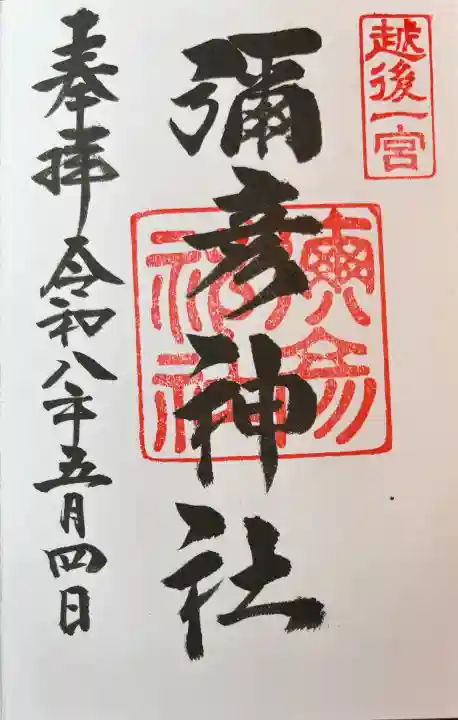 越後一宮
彌彦神社
奉拝 令和八年五月四日